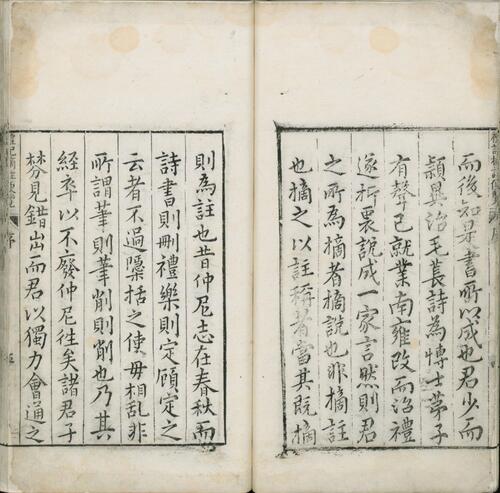 而後知是書所以成也君少而
穎異治毛萇詩為博士弟子
有聲已就業南雍改而治禮
遂折衷說成一家言然則君
之所為摘者摘說也非摘註
也摘之以註稱者當其既摘
則為註也昔仲尼志在春秋而
詩書則刪禮樂則定顧定之
云者不過檃括之使毋相亂非
所謂筆則筆削則削也乃其
經卒以不廢仲尼往矣諸君子
棼見錯出而君以獨力會通之
序